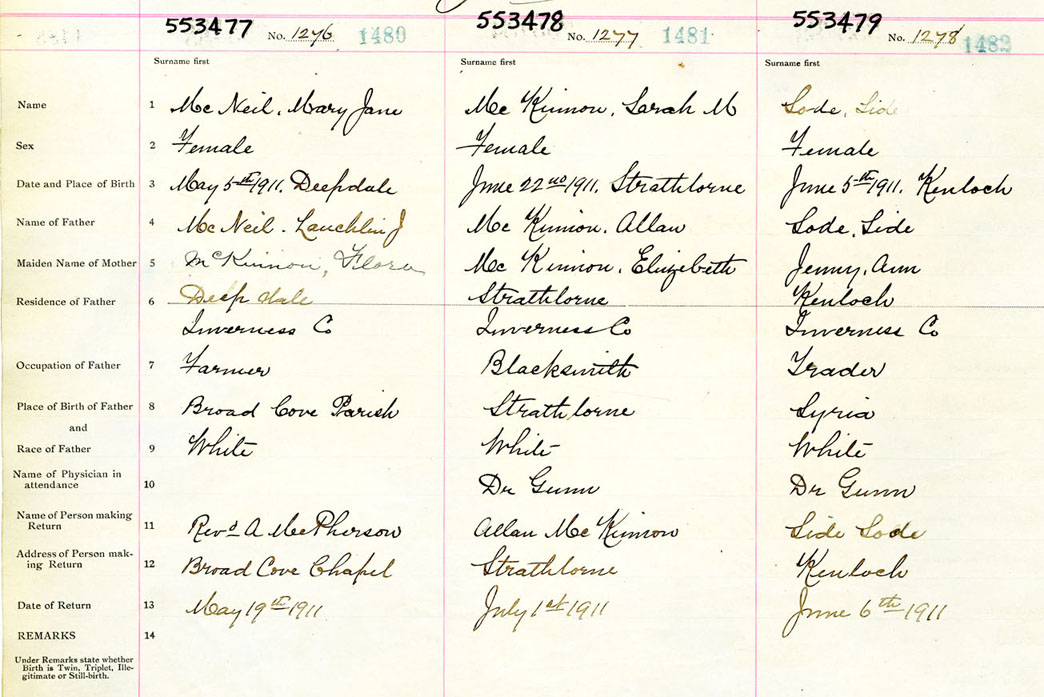 553477 553478 553479
No. 1276 1480 No. 1277 1481 No. 1278 1482
Surname first Surname first Surname first
Name 1 Mc Neil, Mary Jane Mc Kinnon, Sarah M Sode, Side
Sex 2 Female Female Female
Date and Place of Birth 3 May 5th 1911, Deepdale June 22nd 1911, Strathlorne June 5th 1911, Kenloch
Name of Father 4 Mc Neil. Lauchlin J Mc Kinnon, Allan Sode, Side
Maiden Name of Mother 5 McKinnon, Flora Mc Kinnon, Elizebeth Jenny, Ann
Residence of Father 6 Deep dale Strathlorne Kenloch
Inverness Co Inverness Co Inverness Co
Occupation of Father 7 Farmer Blacksmith Trader
Place of Birth of Father 8 Broad Cove Parish Strathlorne Syria
and
Race of Father 9 White White White
Name of Physician in
attendance 10 Dr Gunn Dr Gunn
Name of Person making
Return 11 Revd A MacPherson Allan Mc Kinnon Side Sode
Address of Person mak-
ing Return 12 Broad Cove Chapel Strathlorne Kenloch
Date of Return 13 May 19th 1911 July 1st 1911 June 6th 1911
REMARKS 14
Under Remarks state whether
Birth is Twin, Triplet, Ille-
gitimate or Still-birth.